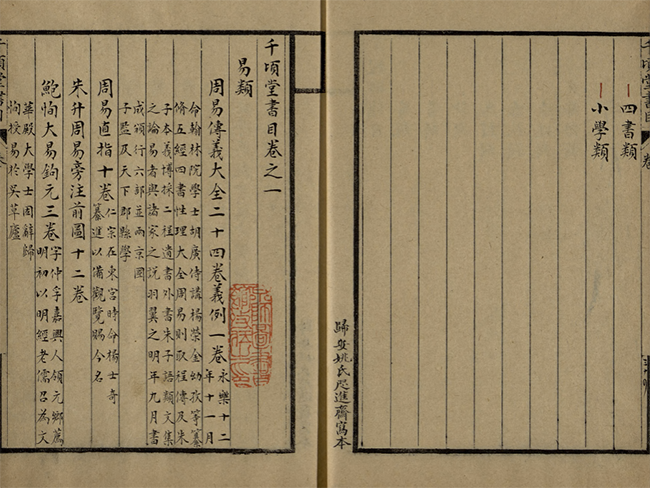 千頃堂書目
四書類
小學類
歸安姚氏咫進齋寫本
千頃堂書目卷之一
易類
周易傳義大全二十四卷義例一卷
永樂十二
年十一月
命翰林院學士胡廣侍講楊榮金幼孜等纂
修五經四書性理大全周易則取程傳及朱
子本義博採二程遺書外書朱子語類文集
之論易者與諸家之說羽翼之明年九月書
成頒行六部並兩京國
子監及天下郡縣學
周易直指十卷
仁宗在東宮時命楊士奇
纂進以備觀覽賜今名
朱升周易旁注前圖十二卷
鮑恂大易鉤元三卷
字仲孚嘉興人領元鄉薦
明初以明經老儒召為文
華殿大學士固辭歸
恂授易於吳草廬
千頃堂書目